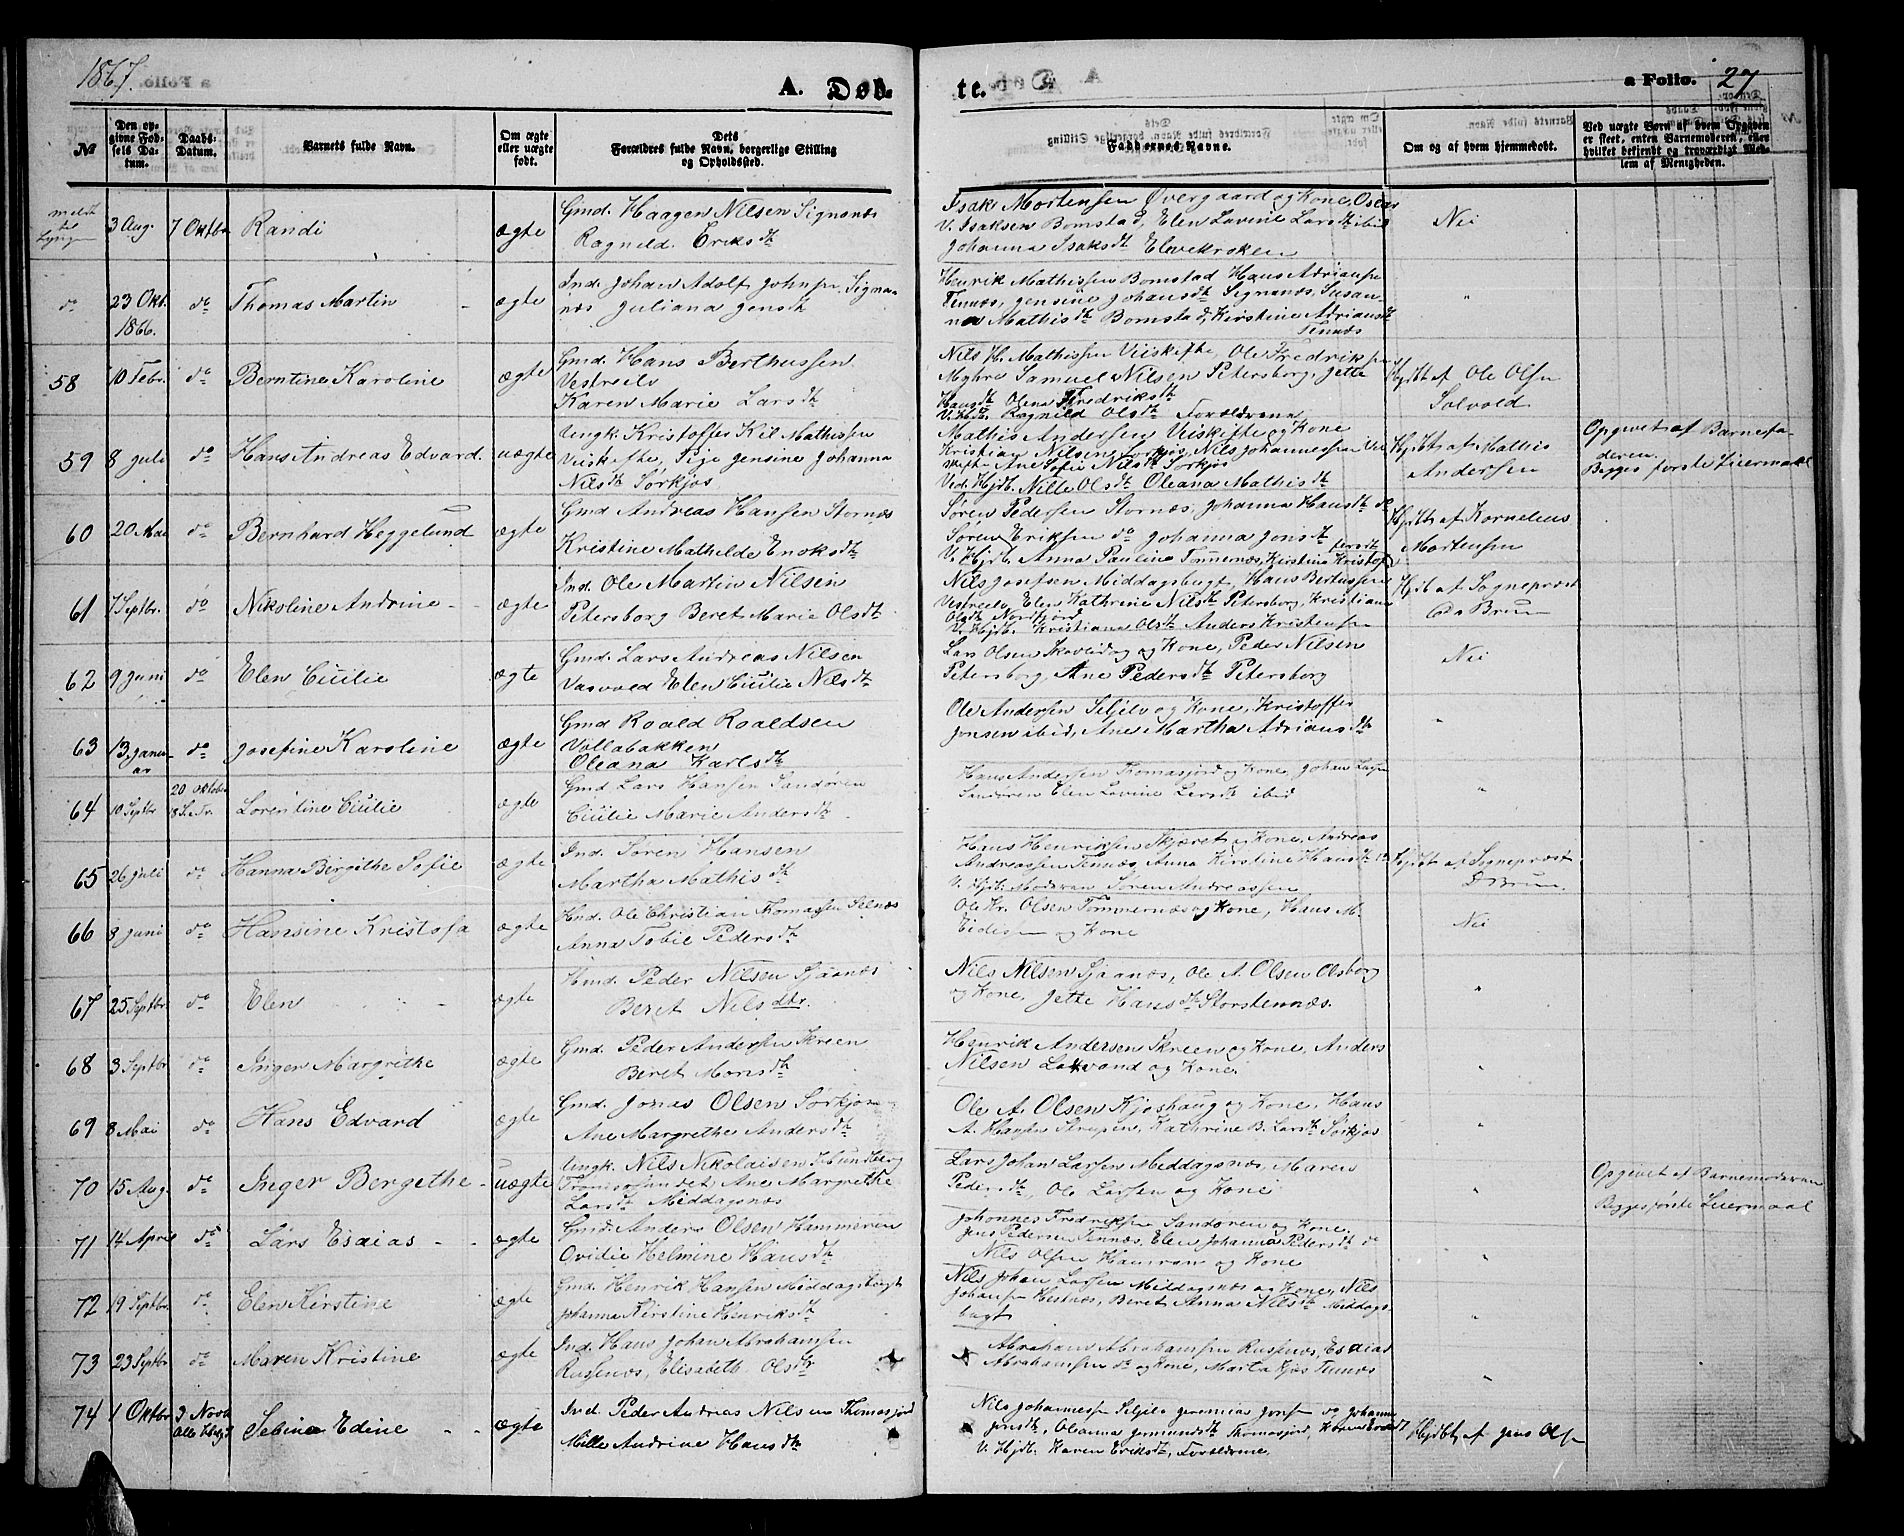 1867.
A. Døb
te.
a Folio. 27
№
Den opgivne Fødsels Datum.
Daabs-Datum.
Barnets fulde Navn.
Om ægte eller uægte født.
Dets Forældres fulde Navn, borgerlige Stilling og Opholdssted.
Faddernes Navne.
Om og af hvem hjemmedøbt.
Ved uægte Børn af hvem Opgiven er skeet, enten Barnemoderen, eller hvilket bekjendt og troværdigt Medlem af Menigheden.
meldt til Lyngen
3 Aug. 7 Oktbr Randi ægte
Gmd. Haagen Nilsen Signanæs
Ragnild Eriksdt
Isak Mortensen Øvergaard og Kone, Oscar
V. Isaksen Bomstad, Elen Lavine Larsdt ibid
Johanna Isaksdt Elvekroken
Nei
do 23 Okt. 1866. do Thomas Martin ægte
Ind. Johan Adolf Johnsen, Signanæs
Juliana Jensdt
Henrik Mathissen Bomstad Hans Adriansen
Tennæs, Jensine Johansdt Signanæs, Susanna
Mathisdt Bomstad, Kirstine Adriansdt
Tennæs
"
58 10 Febr. do Berntine Karoline ægte
Gmd. Hans Berthussen
Vestreelv
Karen Marie Larsdt
Nils H. Mathissen Veiskifte, Ole Fredriksen
Myhre Samuel Nilsen Petersborg, Jette
Hansdt Olena Fredriksdt
V. Hjdb. Ragnild Olsdt Forældrene
Hjdbt af Ole Olsen
Solvold
59 8 Juli do Hans Andreas Edvard. uægte
Ungk. Kristoffer Kil Mathissen
Veiskifte, Pige Jensine Johanna
Nilsdt Sørkjos
Mathis Andersen Veiskifte og Kone
Kristian Nilsen Sørkjos, Nils Johannessen Veiskifte
Ane Sofie Nilsdt Sørkjos
Ved. Hjdb. Nille Olsdt Oleana Mathisdt
Hjdbt af Mathis
Andersen
Opgivet af Barnefaderen.
Begges første Leiermaal
60 20 Mai do Bernhard Heggelund ægte
Gmd Andreas Hansen Stornæs
Kristine Mathilde Enoksdt
Søren Pedersen Stornæs, Johanna Hansdt do
Søren Eriksen do Johanna Jonsdt
V. Hjdb. Anna Pauline Tømmernæs, Kirstine Kristofersdt
Hjdbt af Kornelius
Mortensen
61 7 Septbr. do Nikoline Andrine ægte
Ind. Ole Martin Nilsen
Petersborg Beret Marie Olsdt
Nils Josefsen Middagsbugt, Hans Bertussen
Vestreelv, Elen Kathrine Nilsdt Petersborg, Kristiana
Olsdt Nordfjord
V. Hjdb. Kristiana Olsdt Anders Kristensen
Hjdb af Sogneprest
Brun
62 9 Juni do Elen Cicilie ægte
Gmd. Lars Andreas Nilsen
Vasvold Elen Cicilie Nilsdt
Lars Olsen Skovlidog og Kone, Peder Nilsen
Petersborg, Ane Pedersdt Petersborg
Nei
63 13 Januar do Josefine Karoline ægte
Gmd Roald Roaldsen
Vollabakken
Oleana Karlsdt
Ole Andersen Seljelv og Kone, Kristoffer
Jonsen ibid, Ane Martha Adriansdt
"
64 10 Septbr 20 Oktober Lorentine Cicilie ægte
Gmd Lars Hansen Sandøren
Cicilie Marie Andersdt
Hans Andersen Thomasjord og Kone, Johan Larsen
Sandøren Elen Lovine Larsdt ibid
"
65 26 Juli do Hanna Birgithe Sofie ægte
Ind. Søren Hansen
Martha Mathisdt
Hans Henriksen Skjæret og Kone, Andreas
Andreassen Tennæs, Anna Kirstine Hansdt
V. Hjdb. Moderen Søren Andreassen
Hjdbt af Sogneprest
Brun
66 8 Juni do Hansine Kristofa ægte
Hnd. Ole Christian Thomassen Selnæs
Anna Tobie Pedersdt
Ole Kr. Olsen Tømmernæs og Kone, Hans M.
Eidissen og Kone
Nei
67 25 Septbr do Elen ægte
Hmd. Peder Nilsen Sjaanæs
Beret Nilsdtr.
Nils Nilsen Sjaanæs, Ole A. Olsen Olsborg
og Kone, Jette Hansdt Storstennæs.
"
68 3 Septbr do Inger Margrethe ægte
Gmd. Peder Andersen Skreen
Beret Monsdt
Henrik Andersen Skreen og Kone, Anders
Nilsen Lakvand og Kone
"
69 8 Mai do Hans Edvard ægte
Gmd. Jonas Olsen Sørkjos
Ane Margrethe Andersdt
Ole A. Olsen Kjoshaug og Kone, Hans
A. Hansen Strupen, Kathrine B. Larsdt Sørkjos
"
70 15 Aug. do Inger Bergethe uægte
Ungk. Nils Nikolaisen
Tromsøsundet, Ane Margrethe
Larsdt Middagsnæs
Lars Johan Larsen Middagsnæs, Maren
Pedersdt, Ole Larsen og Kone
"
Opgivet af Barnemoderen
Begges første Leiermaal
71 14 April do Lars Esaias ægte
Gmd. Anders Olsen Hammeren
Ovidie Helmine Hansdt
Johannes Fredriksen Sandøren og Kone,
Jens Pedersen Tennæs, Elen Johanna Pedersdt do
Nils Olsen Hamran og Kone
"
72 19 Septbr. do Elen Kirstine ægte
Gmd. Henrik Hansen Middagsbugt
Johanna Kirstine Henriksdt
Nils Johan Larsen Middagsnæs og Kone, Nils
Johansen Hestnæs, Beret Anna Nilsdt Middagsbugt
"
73 23 Septbr do Maren Kristine ægte
Ind. Hans Johan Abrahamsen
Russenæs, Elisabeth Olsdtr
Abraham Abrahamsen Russenæs, Esaias
Abrahamsen do og Kone, Marta Kjos Tennæs
"
74 1 Oktbr 3 Novb Alle Helg. Sebine Edine ægte
Ind. Peder Andreas Nilsen Thomasjord
Mille Andrine Hansdt
Nils Johannessen Seljelv Jeremias Jonsen do Johanna
Jonsdt, Oleanna Jermundsdt Thomasjord, Karen Eriksdt
V. Hjdb. Karen Eriksdt, Forældrene.
Hjdbt af Jens Olsen